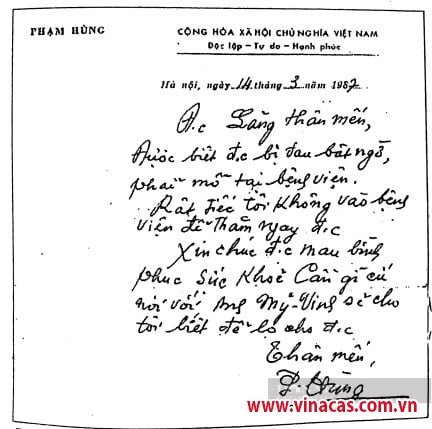 PHẠM HÙNG
CỘNG HÒA XÃ HỘI CHỦ NGHĨA VIỆT NAM
Độc lập – Tự do – Hạnh phúc
Hà nội, ngày 14 tháng 3 năm 1987
Đ.c Lăng thân mến,
Được biết đ.c bị đau bất ngờ,
phải mổ tại bệnh viện.
Rất tiếc tôi không vào bệnh
viện để thăm ngay đ.c
Xin chúc đ.c mau bình
phục sức khoẻ Cần gì cứ
nói với Mỹ-Vinh sẽ cho
tôi biết để lo cho đ.c
Thân mến,
P. Hùng
www.vinacas.com.vn